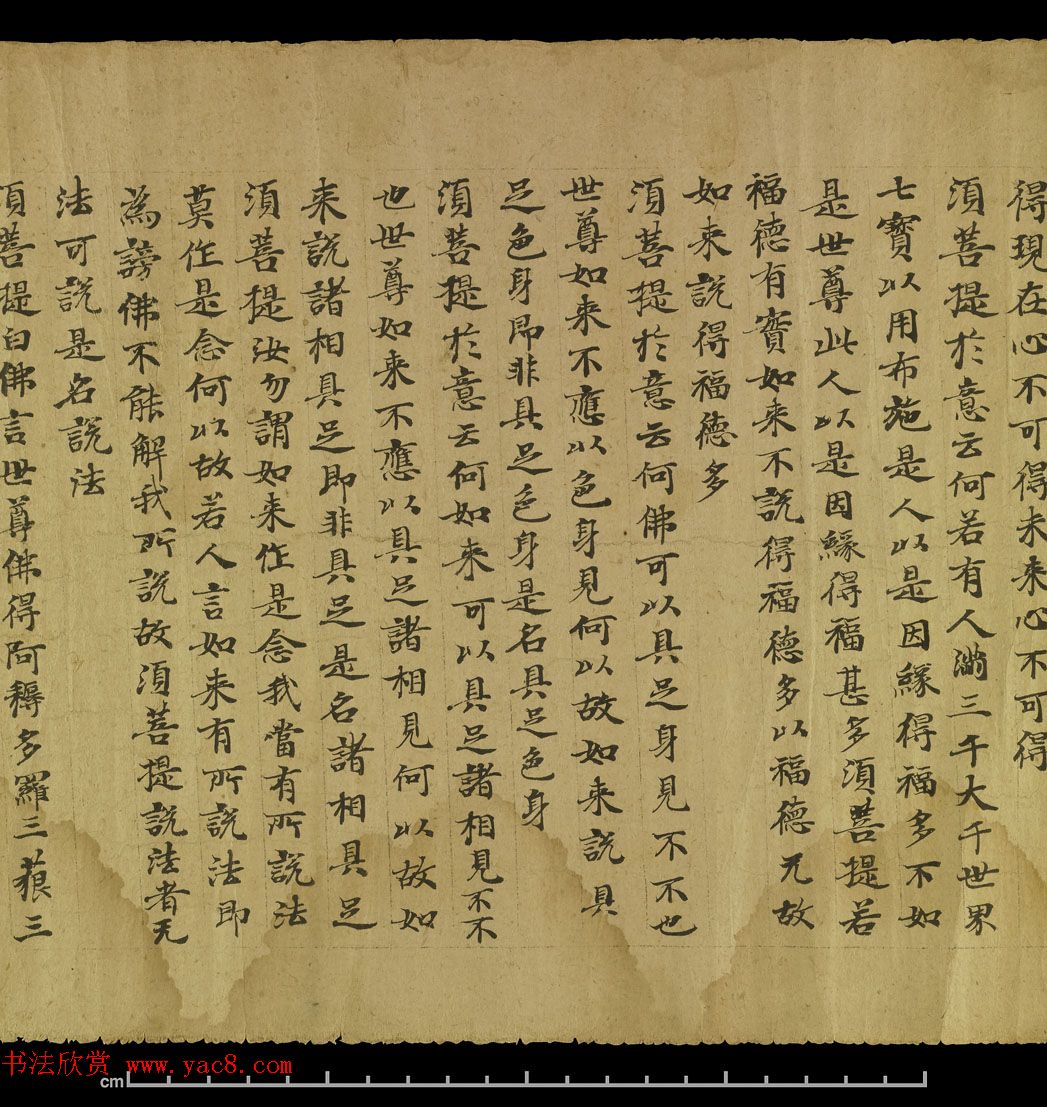 得現在心不可得未来心不可得
須菩提於意云何若有人滿三千大千世界
七寶以用布施是人以是因緣得福多不如
是世尊此人以是因緣得福甚多須菩提若
福德有實如来不說得福德多以福德无故
如来說得福德多
須菩提於意云何佛可以具足身見不不也
世尊如来不應以色身見何以故如来說具
足色身即非具足色身是名具足色身
須菩提於意云何如来可以具足諸相見不不
也世尊如来不應以具足諸相見何以故如
来說諸相具足即非具足是名諸相具足
須菩提汝勿謂如来作是念我當有所說法
莫作是念何以故若人言如来有所說法即
為謗佛不能解我所說故須菩提說法者无
法可說是名說法
須菩提白佛言世尊佛得阿耨多羅三藐三
书法欣赏 www.yac8.com
cm